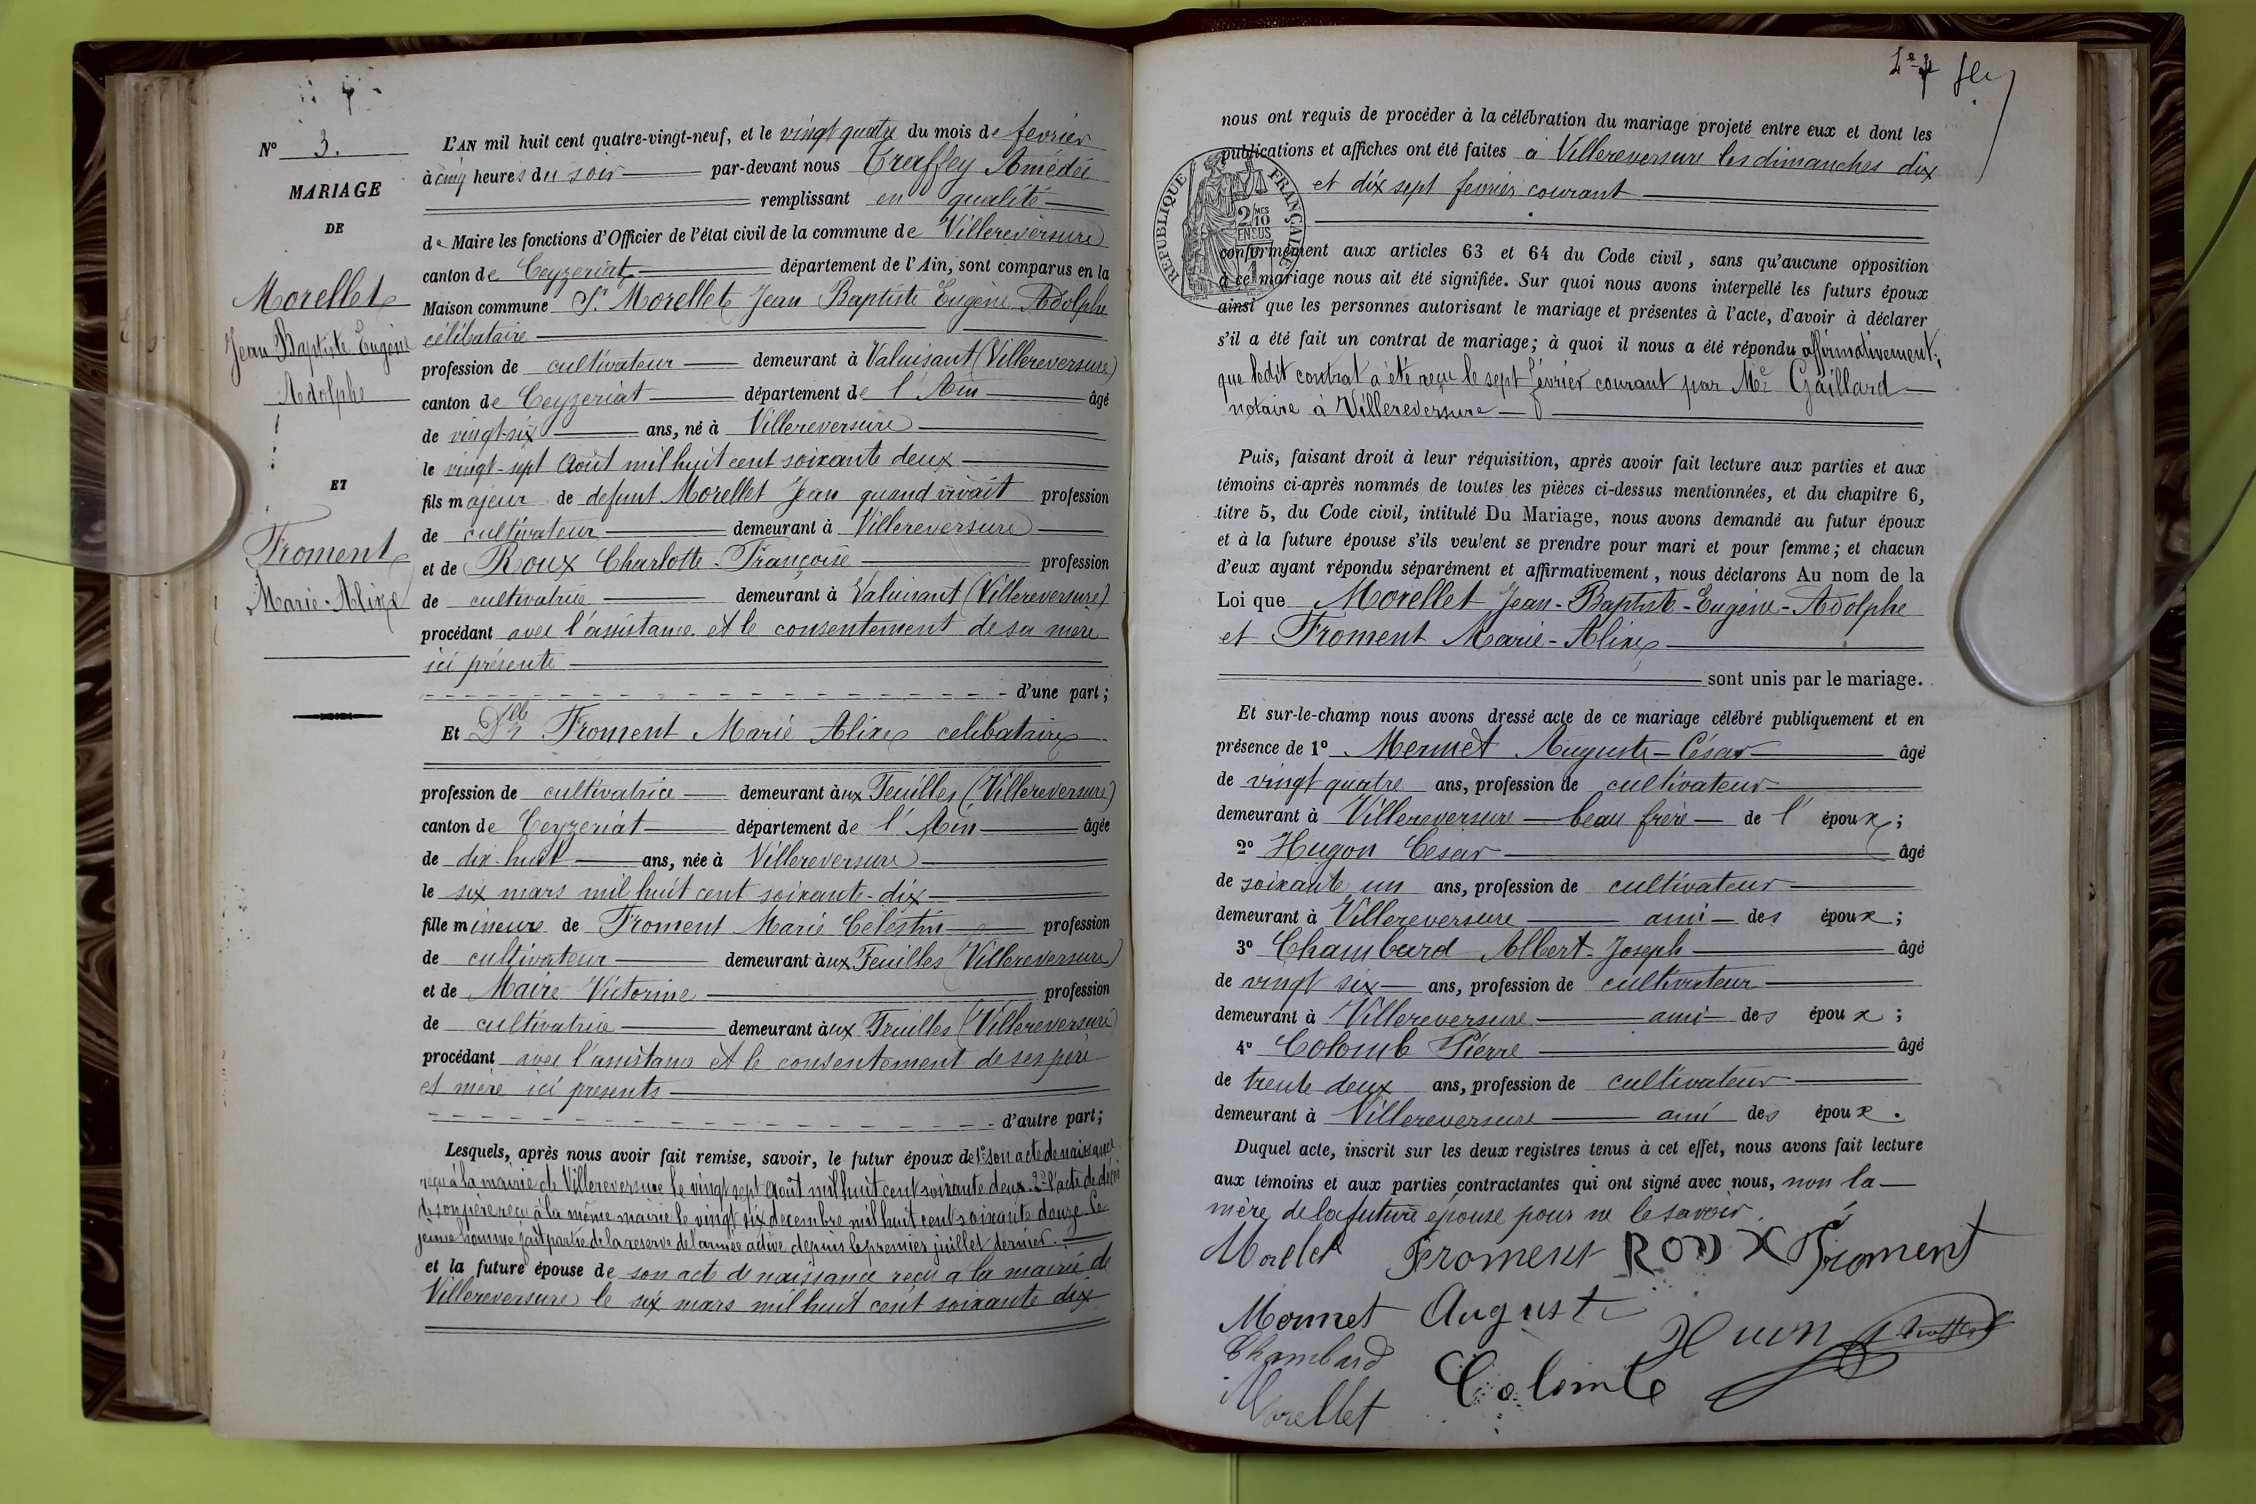 N° 3.
MARIAGE
DE
Morellet
Jean Baptiste Eugène
Adolphe
ET
Froment
Marie-Alixe
L'AN mil huit cent quatre-vingt-neuf, et le vingt quatre du mois de fevrier
à cinq heures du soir par-devant nous Treffey Amédée
remplissant en qualité
de Maire les fonctions d'Officier de l'état civil de la commune de Villereversure
canton de Ceyzeriat département de l'Ain, sont comparus en la
Maison commune Sr Morellet Jean Baptiste Eugène Adolphe
célibataire
profession de cultivateur demeurant à Valuisant (Villereversure)
canton de Ceyzeriat département de l'Ain âgé
de vingt-six ans, né à Villereversure
le vingt-sept Août mil huit cent soixante deux
fils majeur de defunt Morellet Jean quand vivait profession
de cultivateur demeurant à Villereversure
et de Roux Charlotte-Françoise profession
de cultivatrice demeurant à Valuisant (Villereversure)
procédant avec l'assistance et le consentement de sa mère
ici présente
d'une part;
Et Dlle Froment Marie Alixe celibataire
profession de cultivatrice demeurant aux Feuilles (Villereversure)
canton de Ceyzeriat département de l'Ain âgée
de dix-huit ans, née à Villereversure
le six mars mil huit cent soixante-dix
fille mineure de Froment Marie Célestin profession
de cultivateur demeurant aux Feuilles (Villereversure)
et de Maire Victorine profession
de cultivatrice demeurant aux Feuilles (Villereversure)
procédant avec l'assistance et le consentement de ses père
et mère ici presents
d'autre part;
Lesquels, après nous avoir fait remise, savoir, le futur époux de 1° son acte de naissance
reçu à la mairie de Villereversure le vingt sept Août mil huit cent soixante deux. 2° l'acte de décès
de son père reçu à la même mairie le vingt six decembre mil huit cent soixante douze. Le
jeune homme fait partie de la reserve de l'armée active depuis le premier juillet dernier.
et la future épouse de son acte de naissance reçu à la mairie de
Villereversure le six mars mil huit cent soixante dix
nous ont requis de procéder à la célébration du mariage projeté entre eux et dont les
publications et affiches ont été faites à Villereversure les dimanches dix
et dix sept fevrier courant
REPUBLIQUE FRANÇAISE
2/10
EN SUS
conformément aux articles 63 et 64 du Code civil, sans qu'aucune opposition
à ce mariage nous ait été signifiée. Sur quoi nous avons interpellé les futurs époux
ainsi que les personnes autorisant le mariage et présentes à l'acte, d'avoir à déclarer
s'il a été fait un contrat de mariage; à quoi il nous a été répondu affirmativement;
que ledit contrat a été reçu le sept février courant par Me Gaillard
notaire à Villereversure
Puis, faisant droit à leur réquisition, après avoir fait lecture aux parties et aux
témoins ci-après nommés de toutes les pièces ci-dessus mentionnées, et du chapitre 6,
titre 5, du Code civil, intitulé Du Mariage, nous avons demandé au futur époux
et à la future épouse s'ils veulent se prendre pour mari et pour femme; et chacun
d'eux ayant répondu séparément et affirmativement, nous déclarons Au nom de la
Loi que Morellet Jean-Baptiste-Eugène-Adolphe
et Froment Marie-Alixe
sont unis par le mariage.
Et sur-le-champ nous avons dressé acte de ce mariage célébré publiquement et en
présence de 1° Mermet Auguste-César âgé
de vingt quatre ans, profession de cultivateur
demeurant à Villereversure beau frère de l'époux;
2° Hugon Cesar âgé
de soixante un ans, profession de cultivateur
demeurant à Villereversure ami des époux;
3° Chambard Albert-Joseph âgé
de vingt six ans, profession de cultivateur
demeurant à Villereversure ami des époux;
4° Colomb Pierre âgé
de trente deux ans, profession de cultivateur
demeurant à Villereversure ami des époux.
Duquel acte, inscrit sur les deux registres tenus à cet effet, nous avons fait lecture
aux témoins et aux parties contractantes qui ont signé avec nous, non la
mère de la future épouse pour ne le savoir.
Morelet Froment ROUX Froment
Mermet Auguste
Chambard Colomb
Morellet